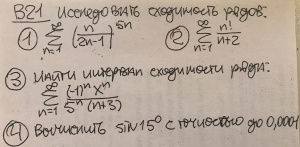 В21 Исследовать сходимость рядов:
① ∑_{n=1}^{∞} (n/(2n-1))^{5n} ② ∑_{n=1}^{∞} n!/(n+2)
③ Найти интервал сходимости ряда:
∑_{n=1}^{∞} (-1)^n x^n / (5^n (n+3))
④ Вычислить sin15° с точностью до 0,0001